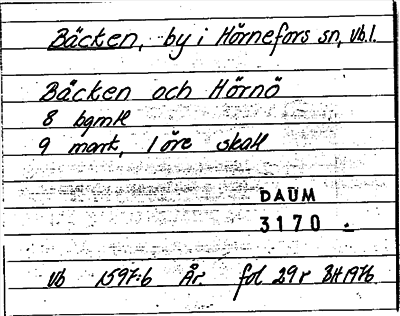 Bäcken, by i Hörnefors sn, Vb.l.
Bäcken och Hörnö
8 bgmtl
9 mark, 1 öre skatt
DAUM
3170
Vb 1597:6 År. fol 29r BH 1976